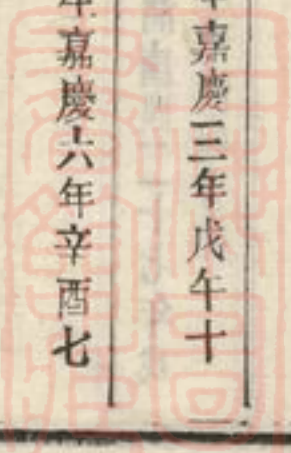 年嘉慶三年戊午十
年嘉慶六年辛酉七